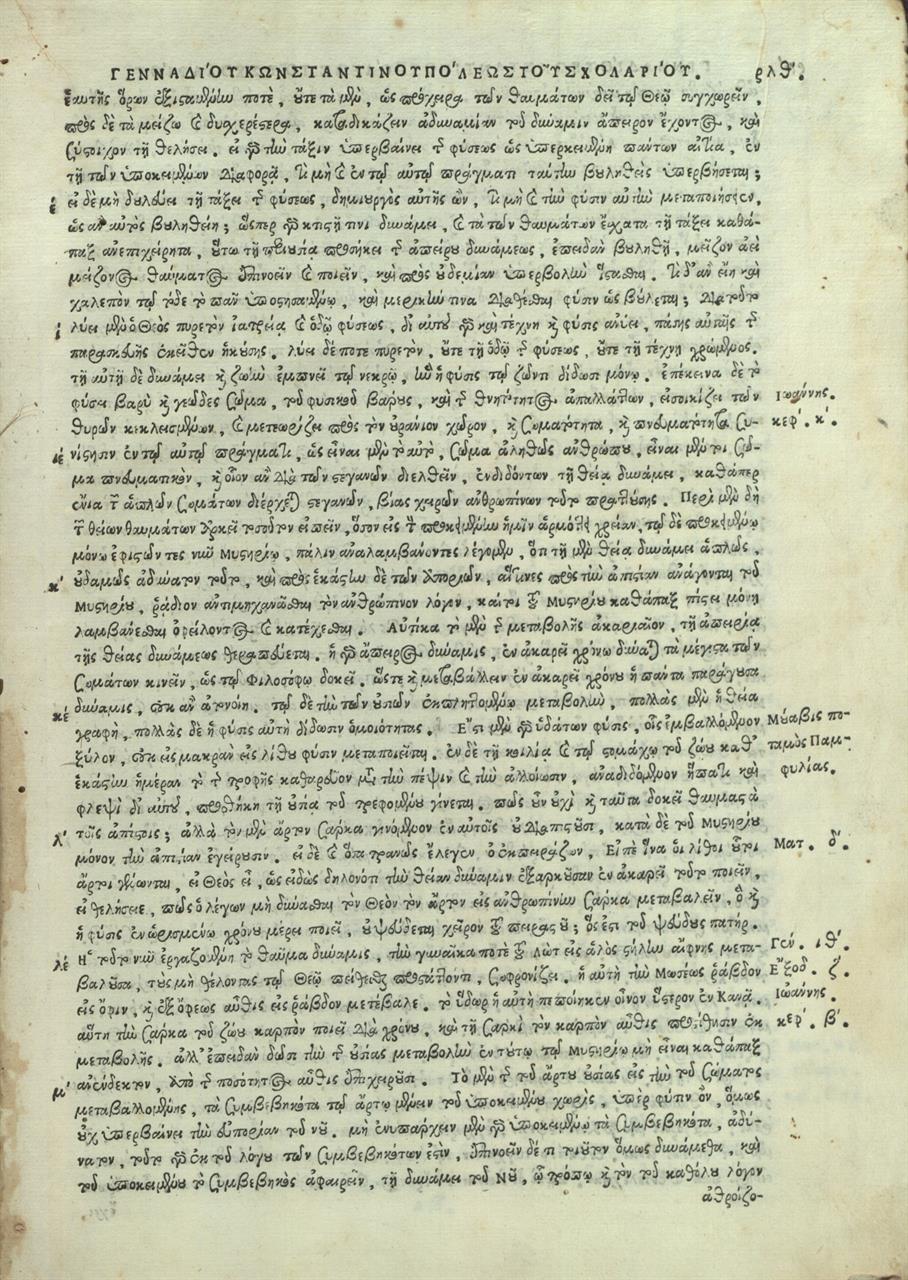 ΓΕΝΝΑΔΙΌΥ ΚΩΝΣΤΑΝΤΙΝΟΥΠΌΛΕΩΣ ΤΟΥ͂ ΣΧΟΛΑΡΙΌΥ. ρλθ΄.
ἑαυτῆς ὅρων ἐξισταμένην ποτὲ, οὔτε τὰ μὲν, ὡς πρόχειρα τῶν θαυμάτων δεῖ τῷ Θεῷ συγχωρεῖν,
πρὸς δὲ τὰ μείζω καὶ δυσχερέστερα, καταδικάζειν ἀδυναμίαν τοῦ δύναμιν ἄπειρον ἔχοντος, καὶ
σύστοιχον τῇ θελήσει. εἰ γὰρ τὴν τάξιν ὑπερβαίνει τῆς φύσεως ὡς ὑπερκειμένη πάντων αἰτία, ἐν
τῇ τῶν ὑποκειμένων διαφορᾷ, τί μὴ καὶ ἐν τῷ αὐτῷ πράγματι ταύτην βουληθεὶς ὑπερβήσεται;
εἰ δὲ μὴ δουλεύει τῇ τάξει τῆς φύσεως, δημιουργὸς αὐτῆς ὢν, τί μὴ καὶ τὴν φύσιν αὐτὴν μεταποιήσειεν,
ὡς ἂν αὐτὸς βουληθείη; ὥσπερ γὰρ κτιστῇ τινι δυνάμει, καὶ τὰ τῶν θαυμάτων ἔσχατα τῇ τάξει καθά-
παξ ἀνεπιχείρητα, οὕτω τῇ πλουσίᾳ προσήκει τῆς ἀπείρου δυνάμεως, ἐπειδὰν βουληθῇ, μεῖζον ἀεὶ
μείζονος θαύματος ἐπινοεῖν καὶ ποιεῖν, καὶ πρὸς οὐδεμίαν ὑπερβολὴν ἵστασθαι. τί δ' ἂν εἴη καὶ
χαλεπὸν τῷ τόδε τὸ πᾶν ὑποστησαμένῳ, καὶ μερικήν τινα διαθέσθαι φύσιν ὡς βούλεται; διατοῦτο
λύει μὲν ὁ Θεὸς πυρετὸν ἰατρείᾳ καὶ ὁδῷ φύσεως, δι' αὐτοῦ γὰρ καὶ τέχνη καὶ φύσις ἀνύει, πάσης αὐταῖς τῆς
παρασκευῆς ἐκεῖθεν ἡκούσης. λύει δέ ποτε πυρετὸν, οὔτε τῇ ὁδῷ τῆς φύσεως, οὔτε τῇ τέχνῃ χρώμενος.
τῇ αὐτῇ δὲ δυνάμει καὶ ζωὴν ἐμπνεῖ τῷ νεκρῷ, ἣν ἡ φύσις τῷ ζῶντι δίδωσι μόνῳ. ἐπέκεινα δὲ τὸ
φύσει βαρὺ καὶ γεῶδες σῶμα, τοῦ φυσικοῦ βάρους, καὶ τῆς θνητότητος ἀπαλλάττων, εἰσοικίζει τῶν Ἰωάννης.
θυρῶν κεκλεισμένων, καὶ μετεωρίζει πρὸς τὸν οὐράνιον χῶρον, καὶ σωματότητα, καὶ πνευματότητα συ- κεφ. κ΄.
νίστησιν ἐν τῷ αὐτῷ πράγματι, ὡς εἶναι μὲν τὸ αὐτὸ, σῶμα ἀληθῶς ἀνθρώπου, εἶναι μέντοι σῶ-
μα πνευματικὸν, καὶ οἷον ἂν διὰ τῶν στεγανῶν διελθεῖν, ἐνδιδόντων τῇ θείᾳ δυνάμει, καθάπερ
ἔνια τῶν ἁπλῶν σωμάτων διέρχεται στεγανῶν, βίας χειρῶν ἀνθρωπίνων τοῦτο πραττούσης. Περὶ μὲν δὴ
τῶν θείων θαυμάτων ἀρκεῖ τοσοῦτον εἰπεῖν, ὅσον εἰς τὴν προκειμένην ἡμῖν ἁρμόττει χρείαν, τῷ δὲ προκειμένῳ
μόνῳ ἐφιστῶντες νῦν Μυστηρίῳ, πάλιν ἀναλαμβάνοντες λέγομεν, ὅτι τῇ μὲν θείᾳ δυνάμει ἁπλῶς,
οὐδαμῶς ἀδύνατον τοῦτο, καὶ πρὸς ἑκάστην δὲ τῶν ἀποριῶν, αἵτινες πρὸς τὴν ἀπιστίαν ἀνάγονται τοῦ
Μυστηρίου, ῥᾴδιον ἀντιμηχανᾶσθαι τὸν ἀνθρώπινον λόγον, καίτοι τοῦ Μυστηρίου καθάπαξ πίστει μόνῃ
λαμβάνεσθαι ὀφείλοντος καὶ κατέχεσθαι. Αὐτίκα τὸ μὲν τῆς μεταβολῆς ἀκαριαῖον, τῇ ἀπειρίᾳ
τῆς θείας δυνάμεως θεραπεύεται. ἡ γὰρ ἄπειρος δύναμις, ἐν ἀκαρεῖ χρόνῳ δύναται τὰ μέγιστα τῶν
σωμάτων κινεῖν, ὡς τῷ Φιλοσόφῳ δοκεῖ. ὥστε καὶ μεταβάλλειν ἐν ἀκαρεῖ χρόνου ἡ πάντα παράγουσα
δύναμις, οὐκ ἂν ἀπνοίη. τῷ δὲ τὴν τῶν οὐσιῶν ἐκπληττομένῳ μεταβολὴν, πολλὰς μὲν ἡ θεία
γραφὴ, πολλὰς δὲ ἡ φύσις αὐτὴ δίδωσιν ὁμοιότητας. Ἔστι μὲν γὰρ ὑδάτων φύσις, οἷς ἐμβαλλόμενον Μύαβις πο-
ξύλον, οὐκ εἰς μακρὰν εἰς λίθου φύσιν μεταποιεῖται. ἐν δὲ τῇ κοιλίᾳ καὶ τῷ στομάχῳ τοῦ ζώου καθ' ταμὸς Παμ-
ἑκάστην ἡμέραν τὸ τῆς τροφῆς καθαρεῦον μετὰ τὴν πέψιν καὶ τὴν ἀλλοίωσιν, ἀναδιδόμενον ἥπατι καὶ φυλίας.
φλεψὶ δι' αὐτοῦ, προσθήκη τῇ οὐσίᾳ τοῦ τρεφομένου γίνεται. πῶς οὖν οὐχὶ καὶ ταῦτα δοκεῖ θαυμαστὰ
τοῖς ἀπίστοις; ἀλλὰ τὸν μὲν ἄρτον σάρκα γινόμενον ἐν αὐτοῖς οὐ διαπιστοῦσι, κατὰ δὲ τοῦ Μυστηρίου
μόνον τὴν ἀπιστίαν ἐγείρουσιν. εἰ δὲ καὶ ὅτε τρανῶς ἔλεγεν ὁ ἐκπειράζων, Εἰπὲ ἵνα οἱ λίθοι οὗτοι Ματ. δ΄.
ἄρτοι γένωνται, εἰ Θεὸς εἶ, ὡς εἰδὼς δηλονότι τὴν θείαν δύναμιν ἐξαρκοῦσαν ἐν ἀκαρεῖ τοῦτο ποιεῖν,
εἰ θελήσειε, πῶς ὁ λέγων μὴ δύνασθαι τὸν Θεὸν τὸν ἄρτον εἰς ἀνθρωπίνην σάρκα μεταβαλεῖν, ὃ καὶ
ἡ φύσις ἐν ὡρισμένῳ χρόνου μέρει ποιεῖ, οὐ ψεύδεται χεῖρον τοῦ πειραστοῦ; ὅς ἐστι τοῦ ψεύδους πατήρ.
Ἡ τοῦτο νῦν ἐργαζομένη τὸ θαῦμα δύναμις, τὴν γυναῖκα ποτὲ τοῦ Λὼτ εἰς ἁλὸς στήλην αἴφνης μετα- Γέν. ιθ΄.
βαλοῦσα, τοὺς μὴ θέλοντας τῷ Θεῷ πείθεσθαι προστάττοντι, σωφρονίζει. ἡ αὐτὴ τὴν Μωσέως ῥάβδον Ἔξοδ. ζ΄.
εἰς ὄφιν, καὶ ἐξ ὄφεως αὖθις εἰς ῥάβδον μετέβαλε. τὸ ὕδωρ ἡ αὐτὴ πεποίηκεν οἶνον ὕστερον ἐν Κανᾷ. Ἰωάννης.
αὕτη τὴν σάρκα τοῦ ζώου καρπὸν ποιεῖ διὰ χρόνου, καὶ τῇ σαρκὶ τὸν καρπὸν αὖθις προστίθησιν ἐκ κεφ. β΄.
μεταβολῆς. ἀλλ' ἐπειδὰν δῶσι τὴν τῆς οὐσίας μεταβολὴν ἐν τούτῳ τῷ Μυστηρίῳ μὴ εἶναι καθάπαξ
ἀνένδεκτον, ἀπὸ τῆς ποσότητος αὖθις ἐπιχειροῦσι. Τὸ μὲν τῆς τοῦ ἄρτου οὐσίας εἰς τὴν τοῦ Σώματος
μεταβαλλομένης, τὰ συμβεβηκότα τῷ ἄρτῳ μένειν τοῦ ὑποκειμένου χωρὶς, ὑπὲρ φύσιν ὂν, ὅμως
οὐχ ὑπερβαίνει τὴν εὐπορίαν τοῦ νοῦ. μὴ ἐνυπάρχειν μὲν γὰρ ὑποκειμένῳ τὰ συμβεβηκότα, ἀδύ-
νατον, τοῦτο γὰρ ἐκ τοῦ λόγου τῶν συμβεβηκότων ἐστὶν, ἐπινοεῖν δέ τι τοιοῦτον ὅμως δυνάμεθα, καὶ
τοῦ ὑποκειμένου τὸ συμβεβηκὸς ἀφαιρεῖν, τῇ δυνάμει τοῦ Νοῦ, ᾧ τρόπῳ καὶ τὸν τοῦ καθόλου λόγον
ἀθροίζο-